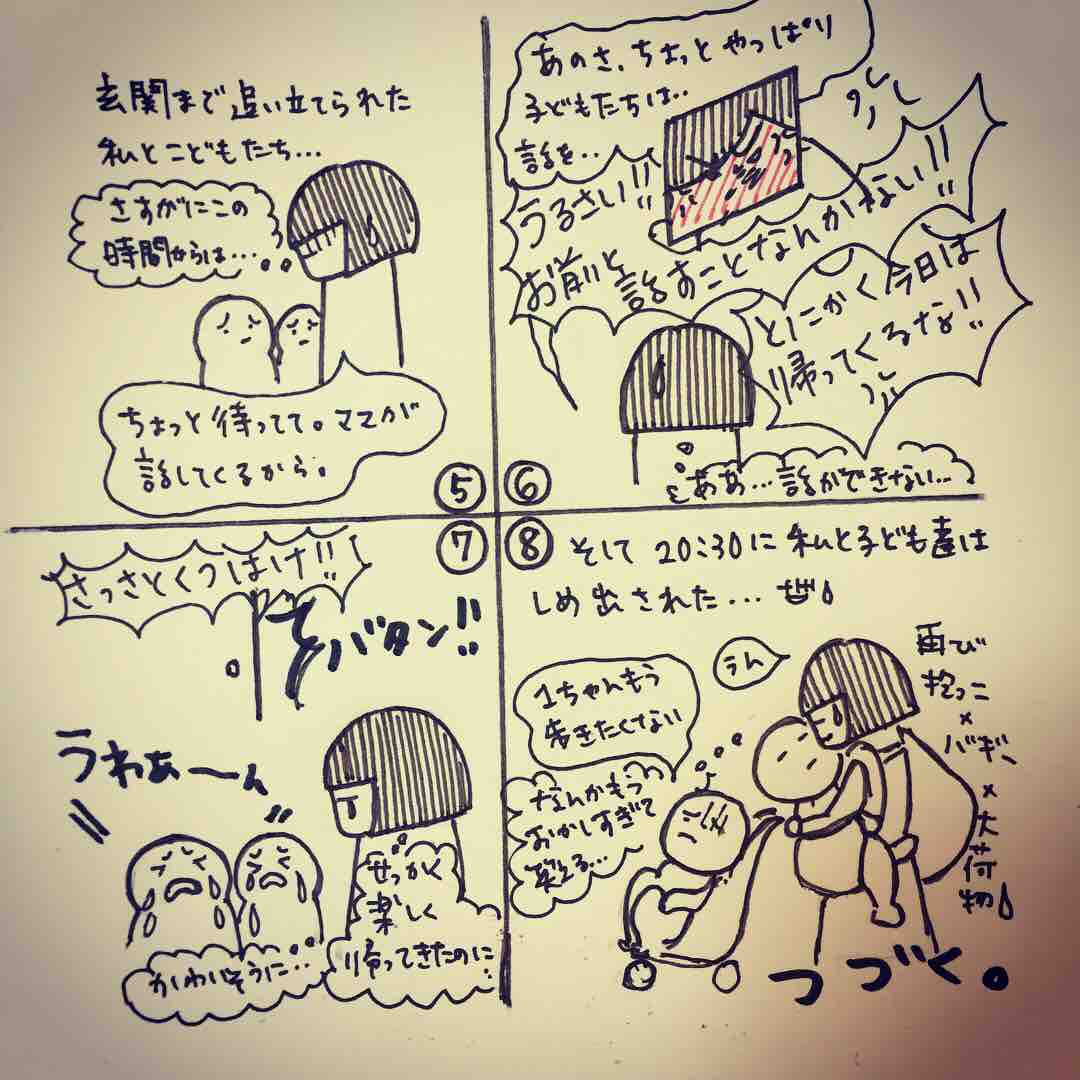 玄関まで追い立てられた
私とこどもたち...
さすがにこの
時間からは...
ちょっと待ってて。ママが
話してくるから。
⑤
あのさ、ちょっとやっぱり
子どもたちは..
話を..
うるさい!!
お前と話すことなんかねない!!
とにかく今日は
帰ってくるな!!
ああ...話ができない...
⑥
⑦
さっさとくつはけ!!
バタン!!
うわぁーん
せっかく
楽しく
帰ってきたのに...
かわいそうに...
⑧
そして 20:30に 私と子ども達は
しめ出された...
うん
1ちゃんもう
歩きたくない
なんかもう
おかしすぎて
笑える...
再び
抱っこ
×
バギー
×
大
荷
物
つづく。